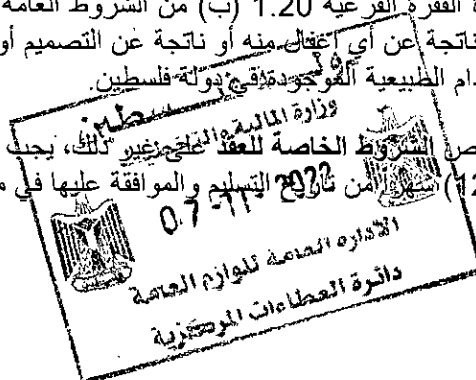 الفقرة الفرعية 1.20 (ب) من الشروط العامة
ناتجة عن أي إغفال منه أو ناتجة عن التصميم أو
دام الطبيعية الموجودة في دولة فلسطين.
الشروط الخاصة للعقد على غير ذلك، يجب
شهرا من تاريخ التسليم والموافقة عليها في
دولة فلسطين
وزارة المالية
07-11-2022
الإدارة العامة للوازم العامة
دائرة العطاءات المركزية